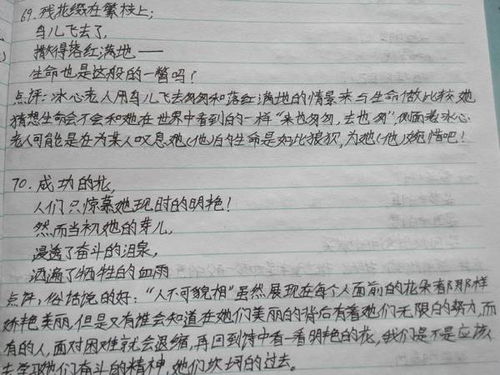 69.残花缀在繁枝上;
鸟儿飞去了,
撒得落红满地——
生命也是这般的一瞥吗?
点评:冰心老人用鸟儿飞去匆匆和落红满地的情景来与生命做比较,她
猜想生命会不会和她在世界中看到的一样"来也匆匆,去也匆"侧面老冰心
老人可能是在为某人叹息她(他)的生命是如此狼狈,为她(他)惋惜吧!
70.成功的花,
人们只惊慕她现时的明艳!
然而当初她的芽儿,
浸透了奋斗的泪泉,
洒遍了牺牲的血雨
点评:俗话说的好:"人不可貌相"虽然展现在每个人面前的花朵看那那样
娇艳美丽,但是又有谁会知道在她们美丽的背后有着她们无限的努力,而
有的人,面对困难就会退缩,再回到诗中看一看明艳的花,我们是不是应该
去学习她们奋斗的精神,她们坎坷的过去。